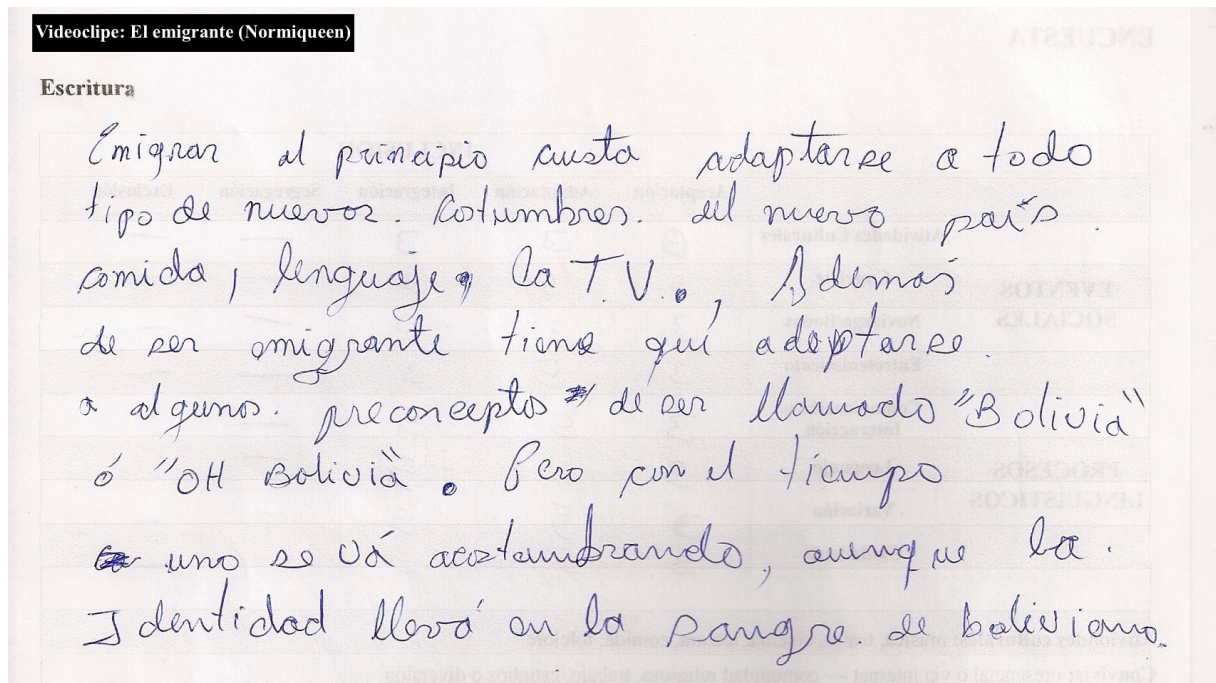 Videoclipe: El emigrante (Normiqueen)
Escritura
Emigrar al principio custa adaptarse a todo
tipo de nuevos. Costumbres. del nuevo país.
comida, lenguaje, la T.V., Además
de ser emigrante tiene quí adaptarse.
a algunos. preconceptos de ser llamado "Bolivia"
ó "OH Bolivia". Pero con el tiempo
uno se vá acostumbrando, aunque la.
Identidad llevá en la sangre de boliviano.